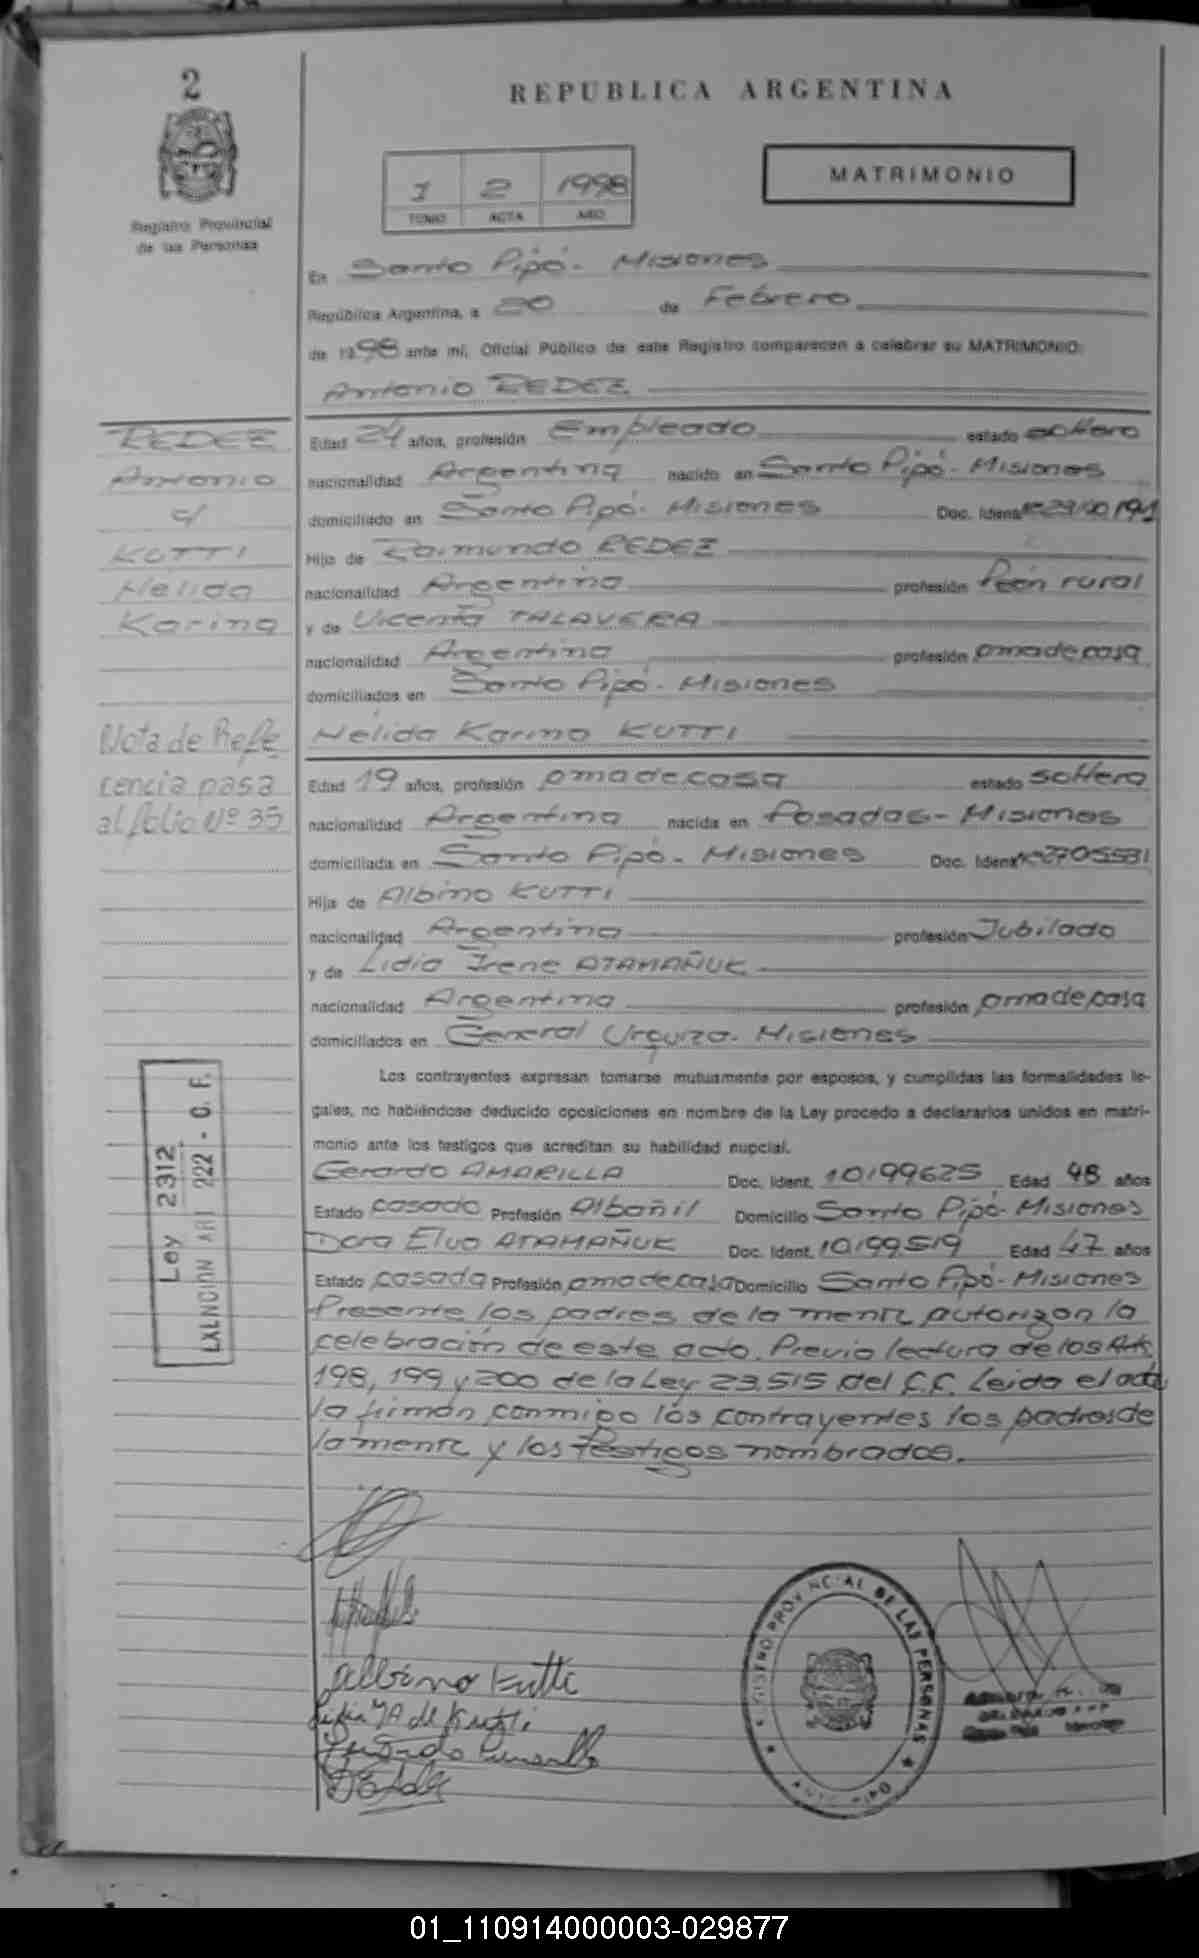 2
REPUBLICA ARGENTINA
Registro Provincial
de las Personas
1 2 1998
TOMO ACTA AÑO
MATRIMONIO
En Santo Pipó - Misiones
República Argentina, a 20 de Febrero
de 1998 ante mí, Oficial Público de este Registro comparecen a celebrar su MATRIMONIO:
Antonio REDEZ
REDEZ
Antonio
c/
KUTTI
Nelida
Karina
Edad 24 años, profesión Empleado estado soltero
nacionalidad Argentina nacido en Santo Pipó - Misiones
domiciliado en Santo Pipó - Misiones Doc. Ident.
Hijo de Raimundo REDEZ
nacionalidad Argentina profesión Peón rural
y de Vicenta TALAVERA
nacionalidad Argentina profesión ama de casa
domiciliados en Santo Pipó - Misiones
Nélida Karina KUTTI
Nota de Refe
rencia pasa
al folio Nº 35
Edad 19 años, profesión ama de casa estado soltera
nacionalidad Argentina nacida en Posadas - Misiones
domiciliada en Santo Pipó - Misiones Doc. Ident.
Hija de Albino KUTTI
nacionalidad Argentina profesión Jubilado
y de Lidia Irene ATAMAÑUK
nacionalidad Argentina profesión ama de casa
domiciliados en General Urquiza - Misiones
Los contrayentes expresan tomarse mutuamente por esposos, y cumplidas las formalidades le-
gales, no habiéndose deducido oposiciones en nombre de la Ley procedo a declararlos unidos en matri-
monio ante los testigos que acreditan su habilidad nupcial.
Gerardo AMARILLA Doc. Ident. 10199625 Edad 48 años
Estado casado Profesión Albañil Domicilio Santo Pipó - Misiones
Dora Elva ATAMAÑUK Doc. Ident. 10199519 Edad 47 años
Estado casada Profesión ama de casa Domicilio Santo Pipó - Misiones
Presente los padres de la menor autorizan la
celebración de este acto. Previo lectura de los Arts.
198, 199 y 200 de la Ley 23.515 del C.C. Leida el acta
la firman conmigo los contrayentes los padres de
la menor y los testigos nombrados.
Ley 2312
EXENCION ART 222 - C. F.
Albino Kutti
REGISTRO PROVINCIAL DE LAS PERSONAS
01_110914000003-029877